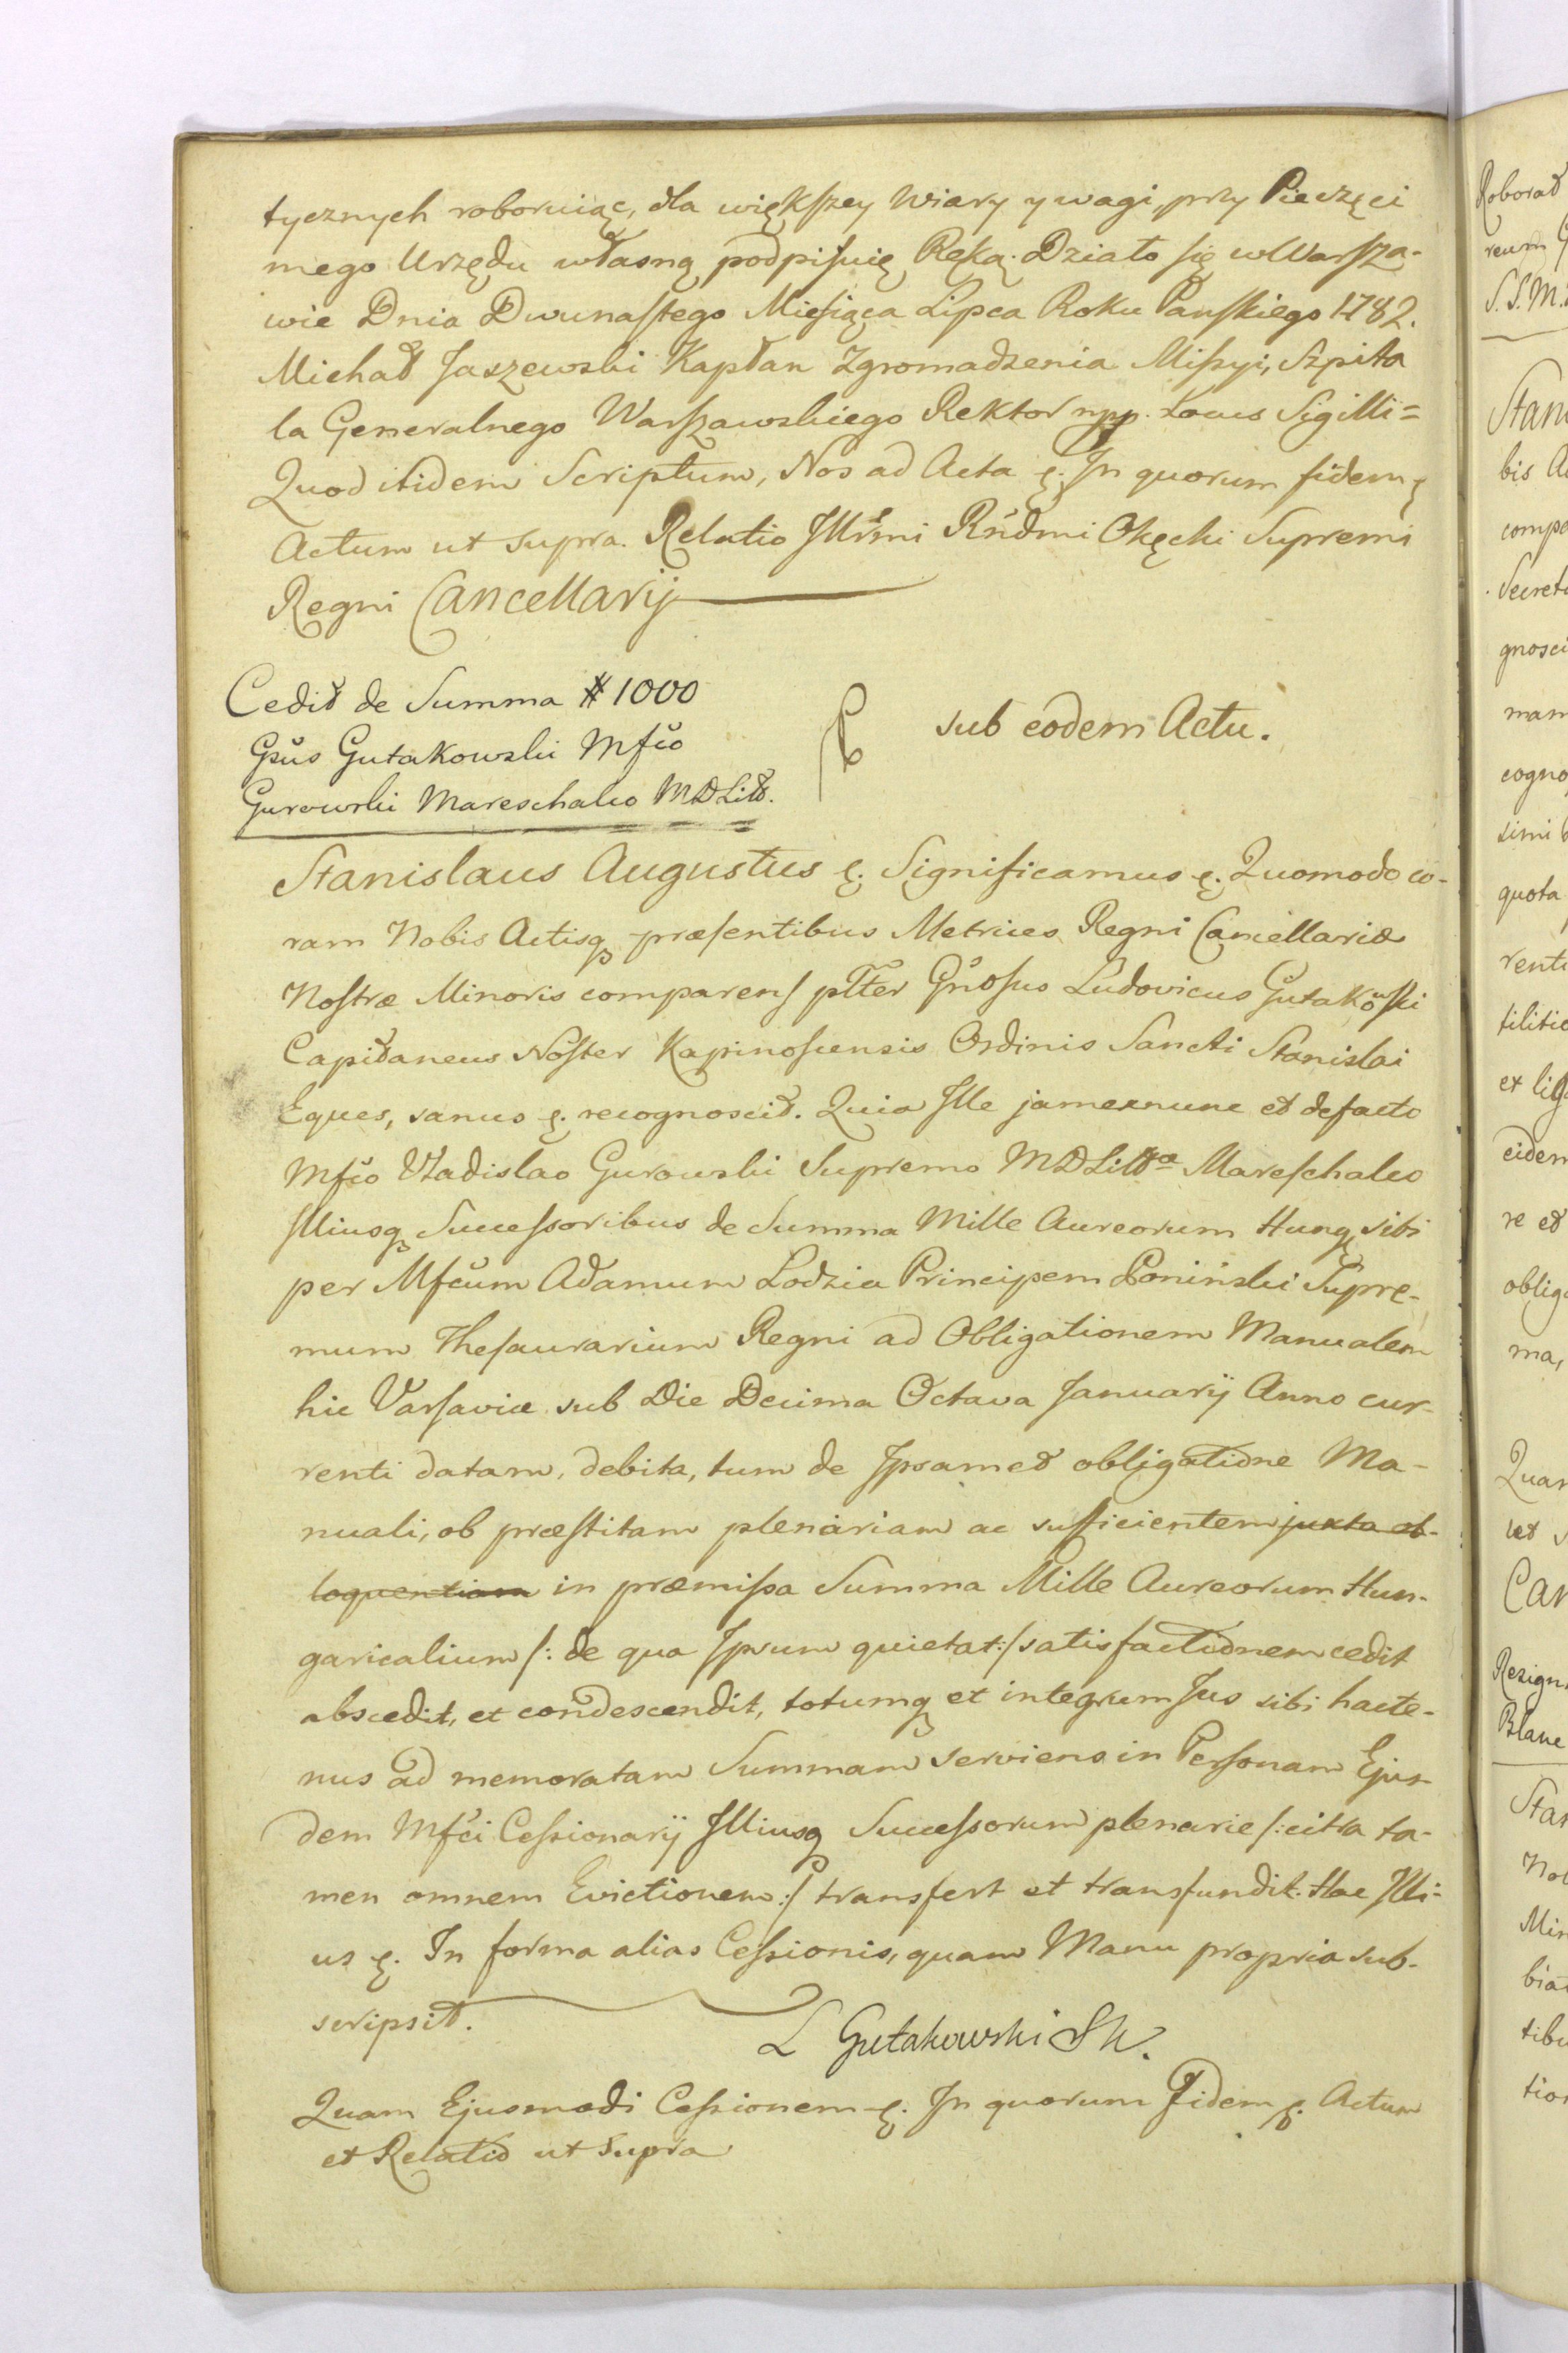 tycznych roboruiąc, dla więkſzey Wiary y wagi, przy Pieczęci
mego Urzędu własną podpiſuię Ręką. Działo ſię w Warſza-
wie Dnia Dwunaſtego Mieſiąca Lipca Roku Panſkiego 1782.
Michał Jaszewski Kapłan Zgromadzenia Miſsyi, Szpita
la Generalnego Warſzawskiego Rektor mpp. Locus Sigilli =
Quod itidem Scriptum, Nos ad Acta ę. In quorum fidem ę
Actum ut supra. Relatio Jllrmi Rńdmi Okęcki Supremi
Regni Cancellarij
Cedit de Summa # 1000
Gsus Gutakowski Mfco
Gurowski Mareschalco MDLitt.
sub eodem Actu.
Stanislaus Augustus ę. Significamus ę. Quomodo co-
ram Nobis Actisq præſentibus Metrices Regni Cancellariæ
Noſtræ Minoris comparenſ pltter Gnoſus Ludovicus Gutakowſki
Capitaneus Noſter Kapinoſcensis Ordinis Sancti Stanislai
Eques, sanus ę. recognoscit. Quia Jlle jamexnunc et defacto
Mfco Vladislao Gurowski Supremo MDLittæ Mareſchalco
Jlliusq Succeſsoribus de Summa Mille Aureorum Hung sibi
per Mfcum Adamum Lodzia Principem Poniński Supre-
mum Theſaurarium Regni ad Obligationem Manualem
hic Varſaviæ sub Die Decima Octava Januarij Anno cur-
renti datam, debita, tum de Jpsamet obligatione Ma-
nuali, ob præſtitam plenariam ac sufficientem juxta et-
loquentiam in præmiſsa Summa Mille Aureorum Hun-
garicalium /: de qua Jpsum quietat :/ satisfactionem cedit
abscedit, et condescendit, totumq et integrum Jus sibi hacte-
nus ad memoratam Summam serviens in Perſonam Ejus-
dem Mfci Ceſsionarij Jlliusq Succeſsorum plenarie /: citra ta-
men omnem Evictionem :/ transfert et transfundit. Hac Jlli-
us ę. In forma alias Ceſsionis, quam Manu propria sub-
scripsit.
L Gutakowski SK.
Quam Ejusmodi Ceſsionem ę. In quorum Fidem ę. Actum
et Relatio ut Supra